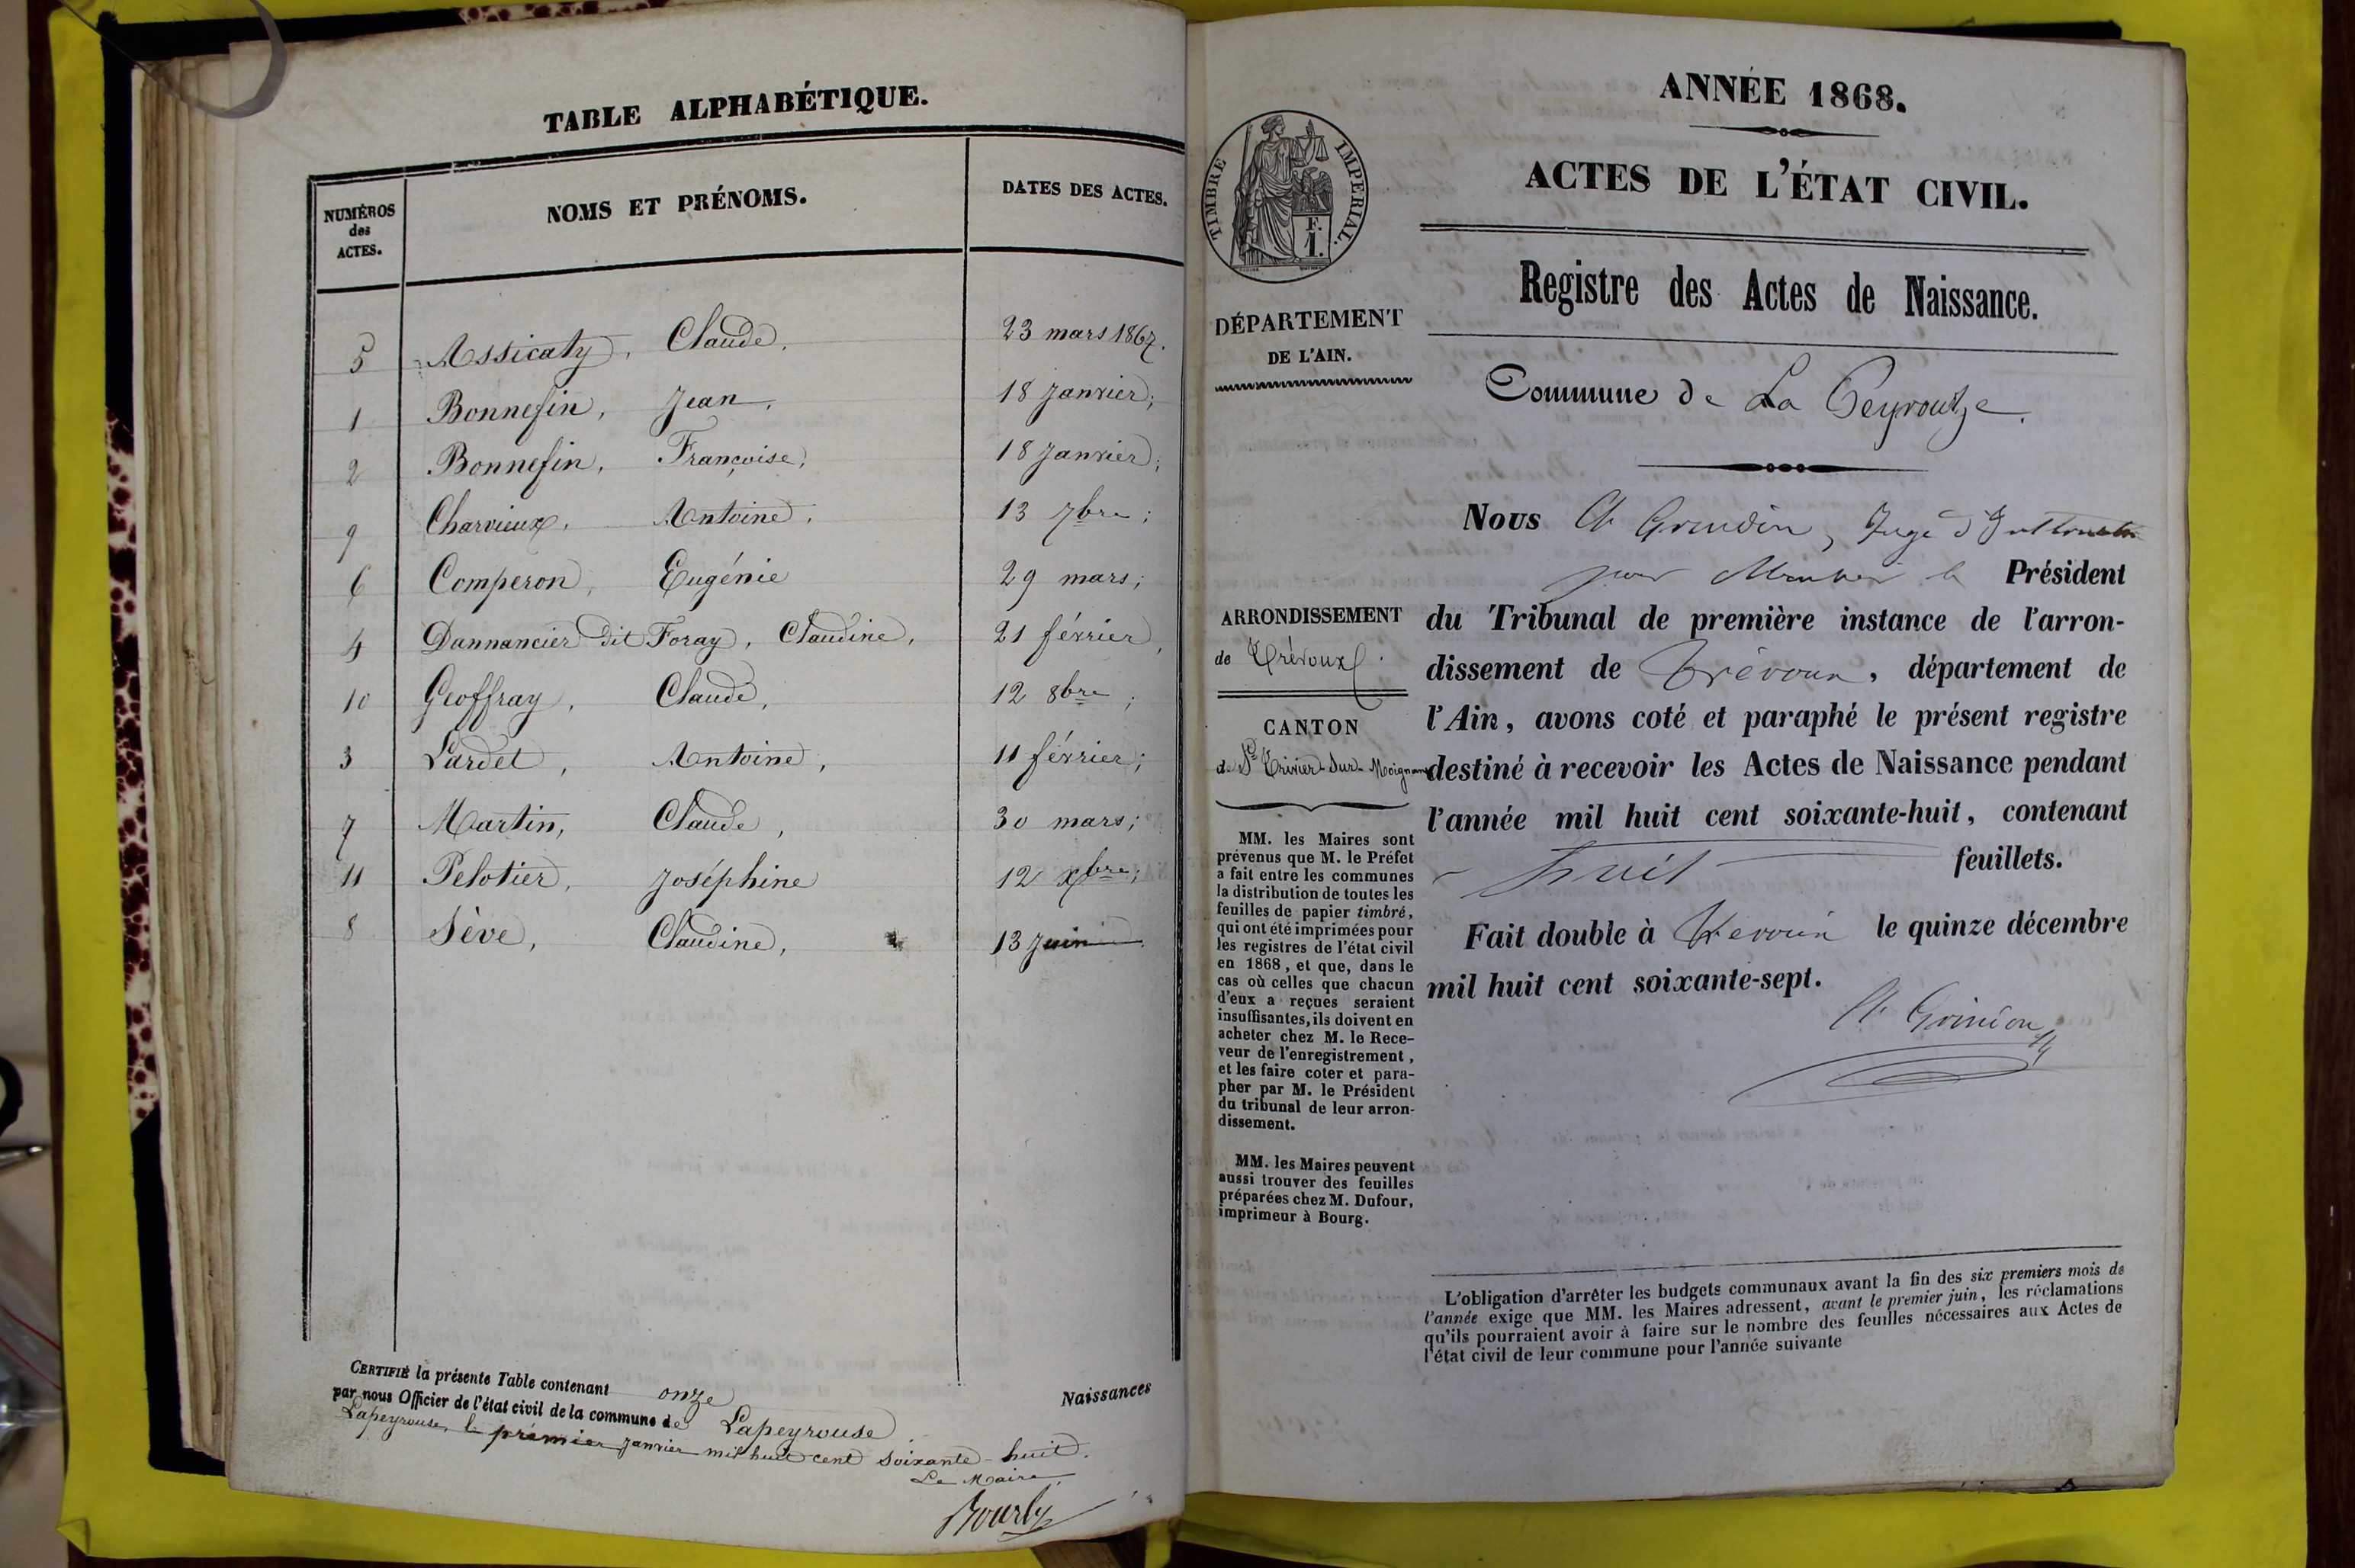 TABLE ALPHABÉTIQUE.
NUMÉROS
des
ACTES.
NOMS ET PRÉNOMS.
DATES DES ACTES.
5 Assicaty, Claude, 23 mars 1867.
1 Bonnefin, Jean, 18 Janvier;
2 Bonnefin, Françoise, 18 Janvier;
9 Charvieux, Antoine, 13 7bre;
6 Comperon, Eugénie 29 mars;
4 Dannancier dit Foray, Claudine, 21 février,
10 Geoffray, Claude, 12 8bre;
3 Lardet, Antoine, 11 février;
7 Martin, Claude, 30 mars;
11 Pelotier, Joséphine 12 xbre;
8 Sève, Claudine, 13 Juin
CERTIFIÉ la présente Table contenant onze Naissances
par nous Officier de l'état civil de la commune de Lapeyrouse
Lapeyrouse, le premier janvier mil huit cent soixante-huit.
Le Maire,
Bourly
ANNÉE 1868.
ACTES DE L'ÉTAT CIVIL.
Registre des Actes de Naissance.
Commune de La Peyrouze.
TIMBRE IMPERIAL.
F.
1.
DÉPARTEMENT
DE L'AIN.
ARRONDISSEMENT
de Trévoux.
CANTON
de St Trivier-sur-Moignans
MM. les Maires sont
prévenus que M. le Préfet
a fait entre les communes
la distribution de toutes les
feuilles de papier timbré,
qui ont été imprimées pour
les registres de l'état civil
en 1868, et que, dans le
cas où celles que chacun
d'eux a reçues seraient
insuffisantes, ils doivent en
acheter chez M. le Rece-
veur de l'enregistrement,
et les faire coter et para-
pher par M. le Président
du tribunal de leur arron-
dissement.
MM. les Maires peuvent
aussi trouver des feuilles
préparées chez M. Dufour,
imprimeur à Bourg.
Nous Juge d'
pour le Président
du Tribunal de première instance de l'arron-
dissement de Trévoux, département de
l'Ain, avons coté et paraphé le présent registre
destiné à recevoir les Actes de Naissance pendant
l'année mil huit cent soixante-huit, contenant
huit feuillets.
Fait double à Trevoux le quinze décembre
mil huit cent soixante-sept.
L'obligation d'arrêter les budgets communaux avant la fin des six premiers mois de
l'année exige que MM. les Maires adressent, avant le premier juin, les réclamations
qu'ils pourraient avoir à faire sur le nombre des feuilles nécessaires aux Actes de
l'état civil de leur commune pour l'année suivante